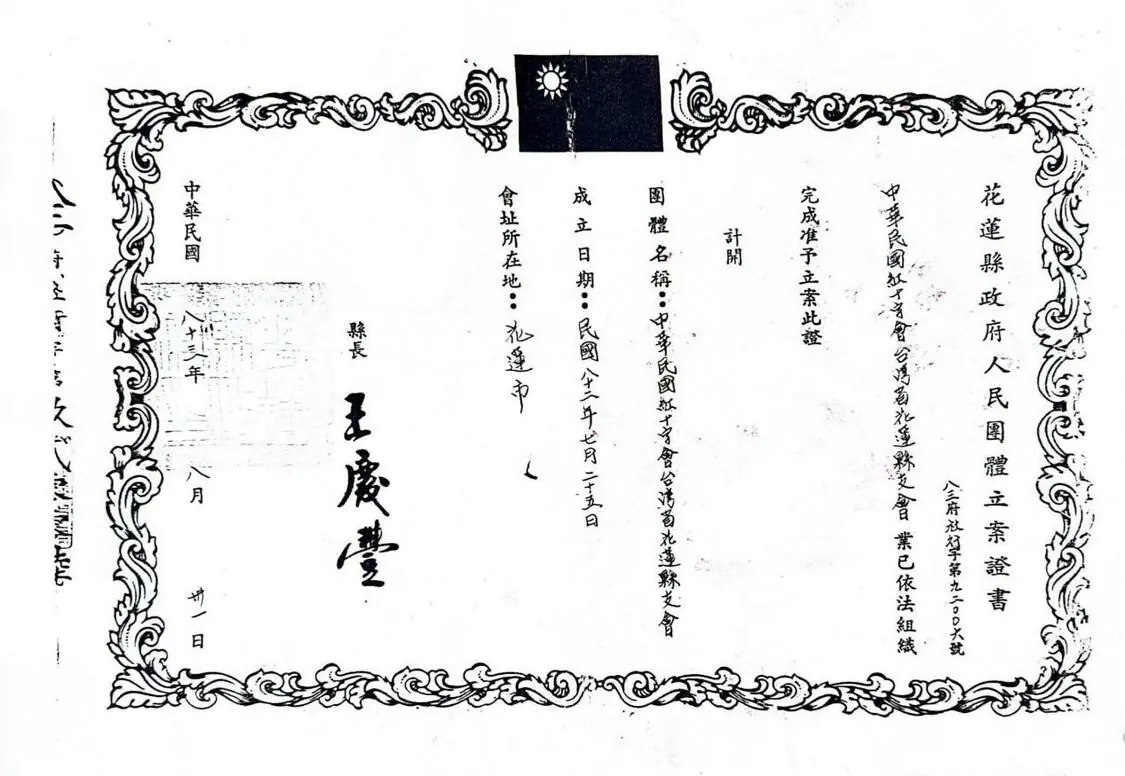 花蓮縣政府人民團體立案證書
八三府社行字第九二００六號
中華民國紅十字會台灣省花蓮縣支會 業已依法組織
完成准予立案此證
計開
團體名稱：中華民國紅十字會台灣省花蓮縣支會
成立日期：民國八十三年七月二十五日
會址所在地：花蓮市
縣長 王慶豐
中華民國 八十三年 八月 卅一日